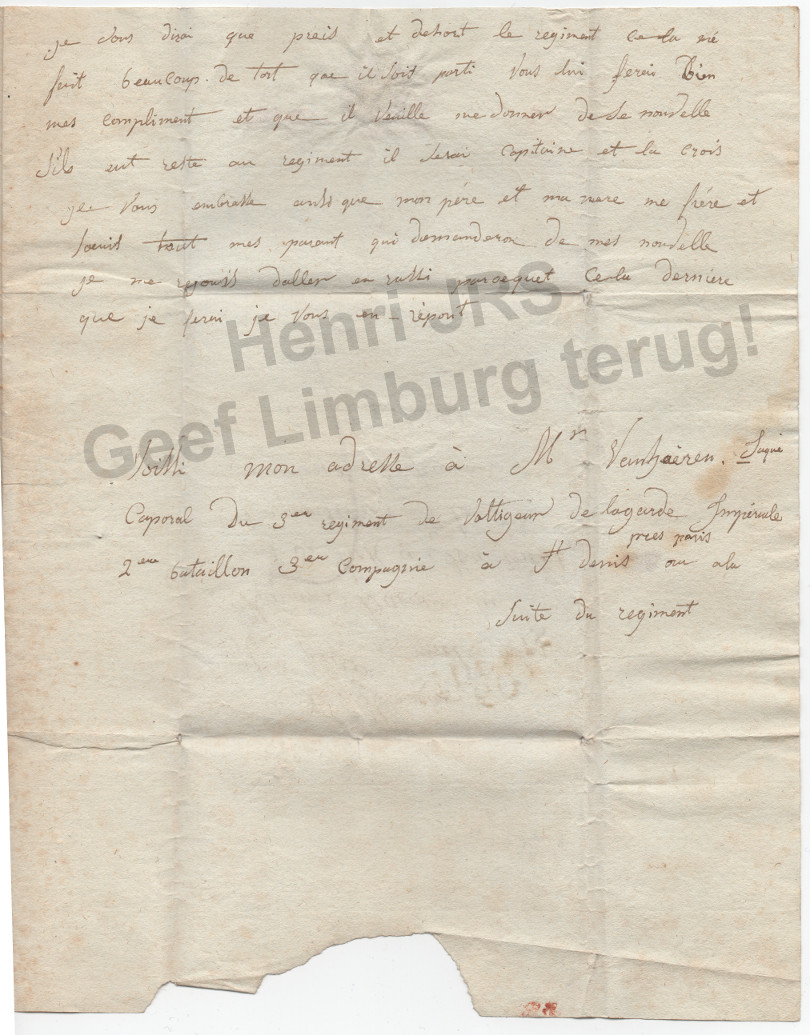 je vous dirai que preis et dehort le regiment ce la mé
fait beaucoup de tort que il soit parti vous lui ferai bien
mes compliment et que il veuille me donner de se nouvelle
s'ils eut reste au regiment il serai capitaine et la crois
je vous embrasse ansi que mon pére et ma mere me frére et
soeuis tout mes parant qui demanderon de mes nouvelle
je me rejouis daller en rassi parcequet ce la derniere
que je ferai je vous en répont
Henri JRS
Geef Limburg terug!
Voissi mon adresse à Mr
Caporal du 3eu regiment de voltigeur de lagarde Impériale
2eme bataillon 3eu Compagnie à St denis pres paris ou ala
suite du regiment